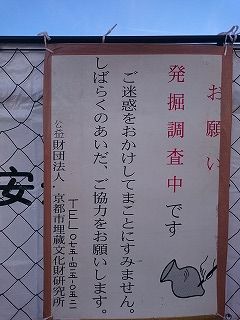 お願い
発掘調査中です
ご迷惑をおかけしてまことにすみません。
しばらくのあいだ、ご協力をお願いします。
公益財団法人 京都市埋蔵文化財研究所
TEL
安